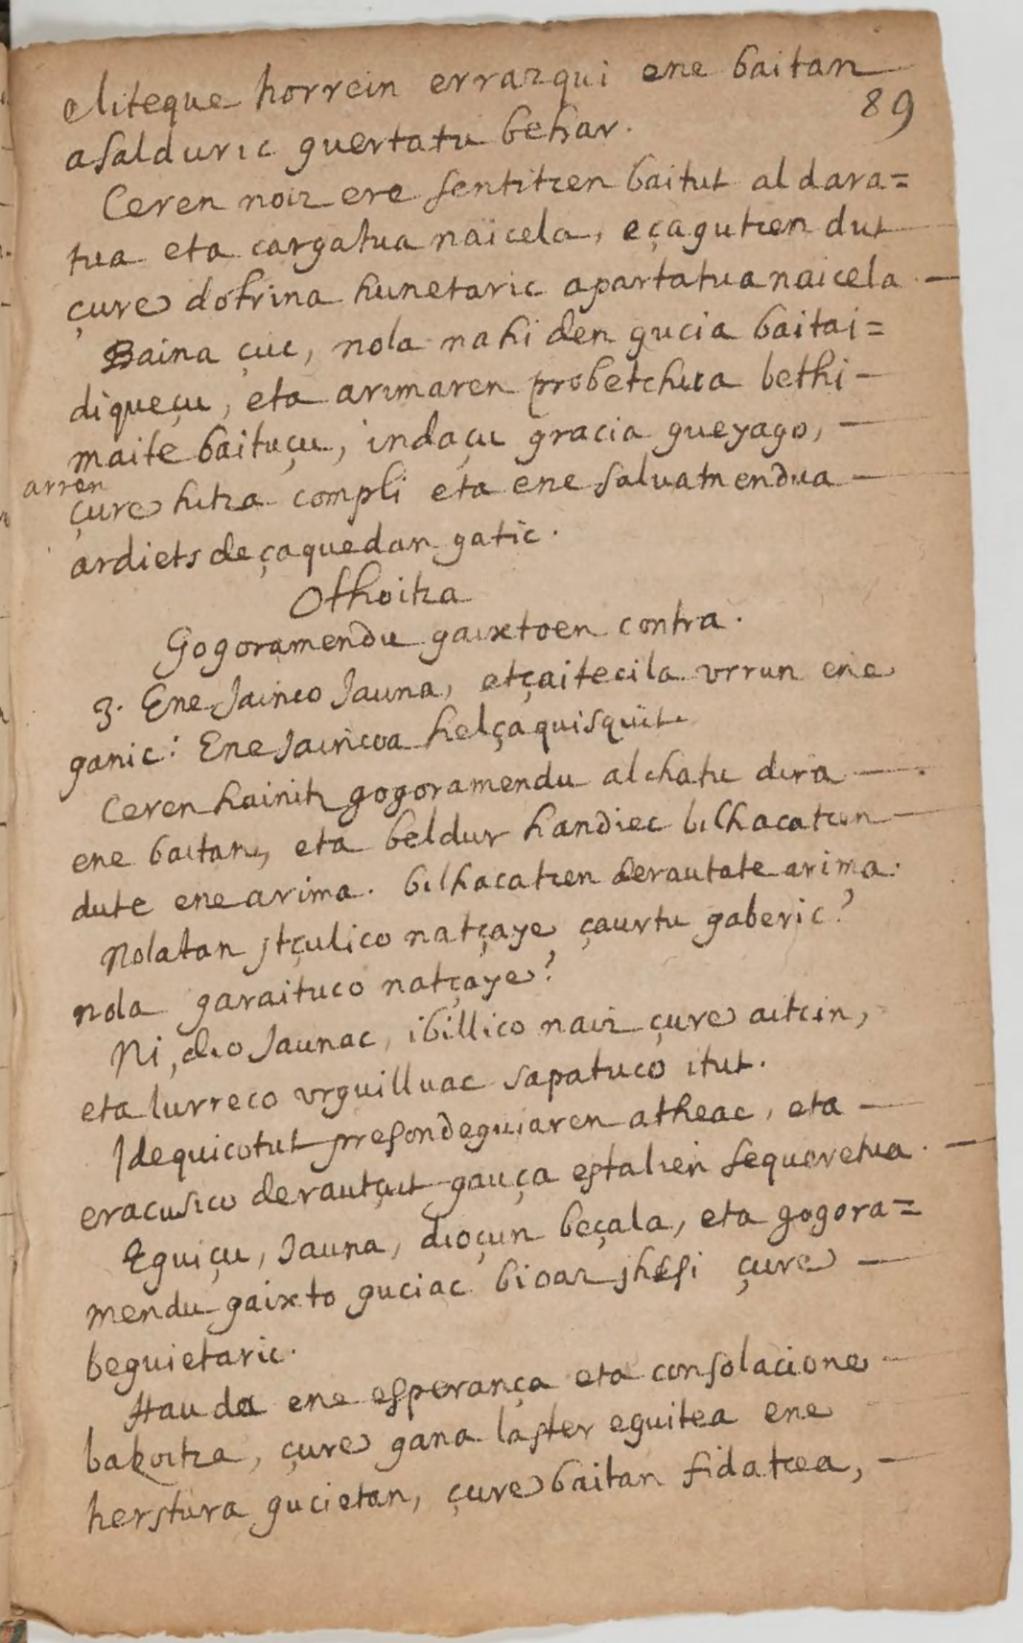 eliteque horrein errazqui ene baitan
89
asalduric guertatu behar.
Ceren noiz ere sentitzen baitut aldara=
tua eta cargatua naicela, eçagutzen dut
çure dotrina hunetaric apartatua naicela.
Baina çuc, nola nahi den gucia baitai=
diqueçu, eta arimaren probetchua bethi
maite baituçu, indaçu gracia gueyago,
arren
çure hitza compli eta ene salvamendua
ardiets deçaquedan gatic.
Othoitza
Gogoramendu gaixtoen contra.
3. Ene Jainco Jauna, etçaitecila urrun ene
ganic: Ene Jaincoa helçaquisquit.
Ceren hainitz gogoramendu alchatu dira
ene baitan, eta beldur handiec bilhacatzen
dute ene arima. bilhacatzen derautate arima.
Nolatan jtçulico natçaye çaurtu gaberic?
nola garaituco natçaye?
Ni, dio Jaunac, ibillico naiz çure aitcin,
eta lurreco urguilluac sapatuco itut.
Idequicotut presondeguiaren atheac, eta
eracusico derautçut gauça estalien sequeretua.
Eguiçu, Jauna, dioçun beçala, eta gogora=
mendu gaixto guciac bioaz jhesi çure
beguietaric.
Hau da ene esperança eta consolacione
bakoitza, çure gana laster eguitea ene
herstura gucietan, çure baitan fidatcea,